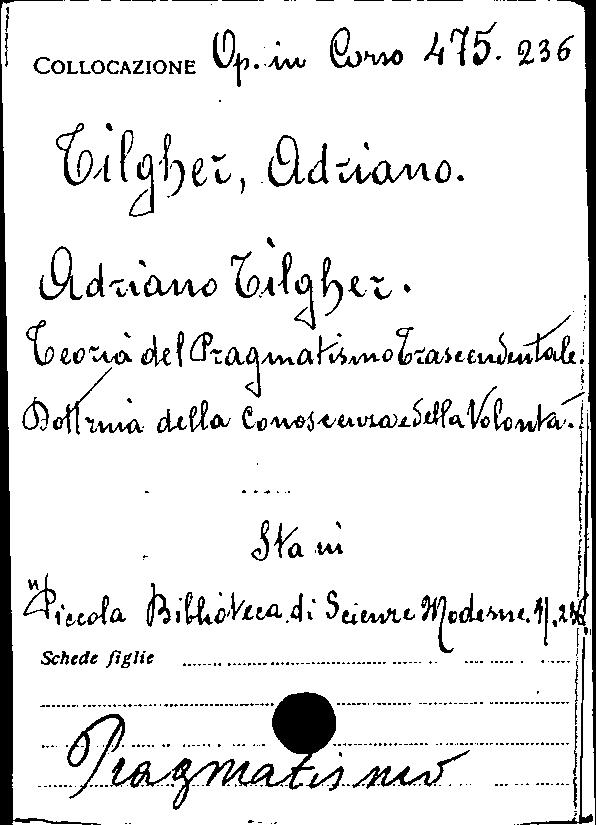 COLLOCAZIONE Op. in Corso 475. 236
Tilgher, Adriano.
Adriano Tilgher.
Teoria del Pragmatismo Trascendentale.
Dottrina della Conoscenza e della Volontà.
.....
Sta in
"Piccola Biblioteca di Scienze Moderne. N. 236
Schede figlie
Pragmatismo